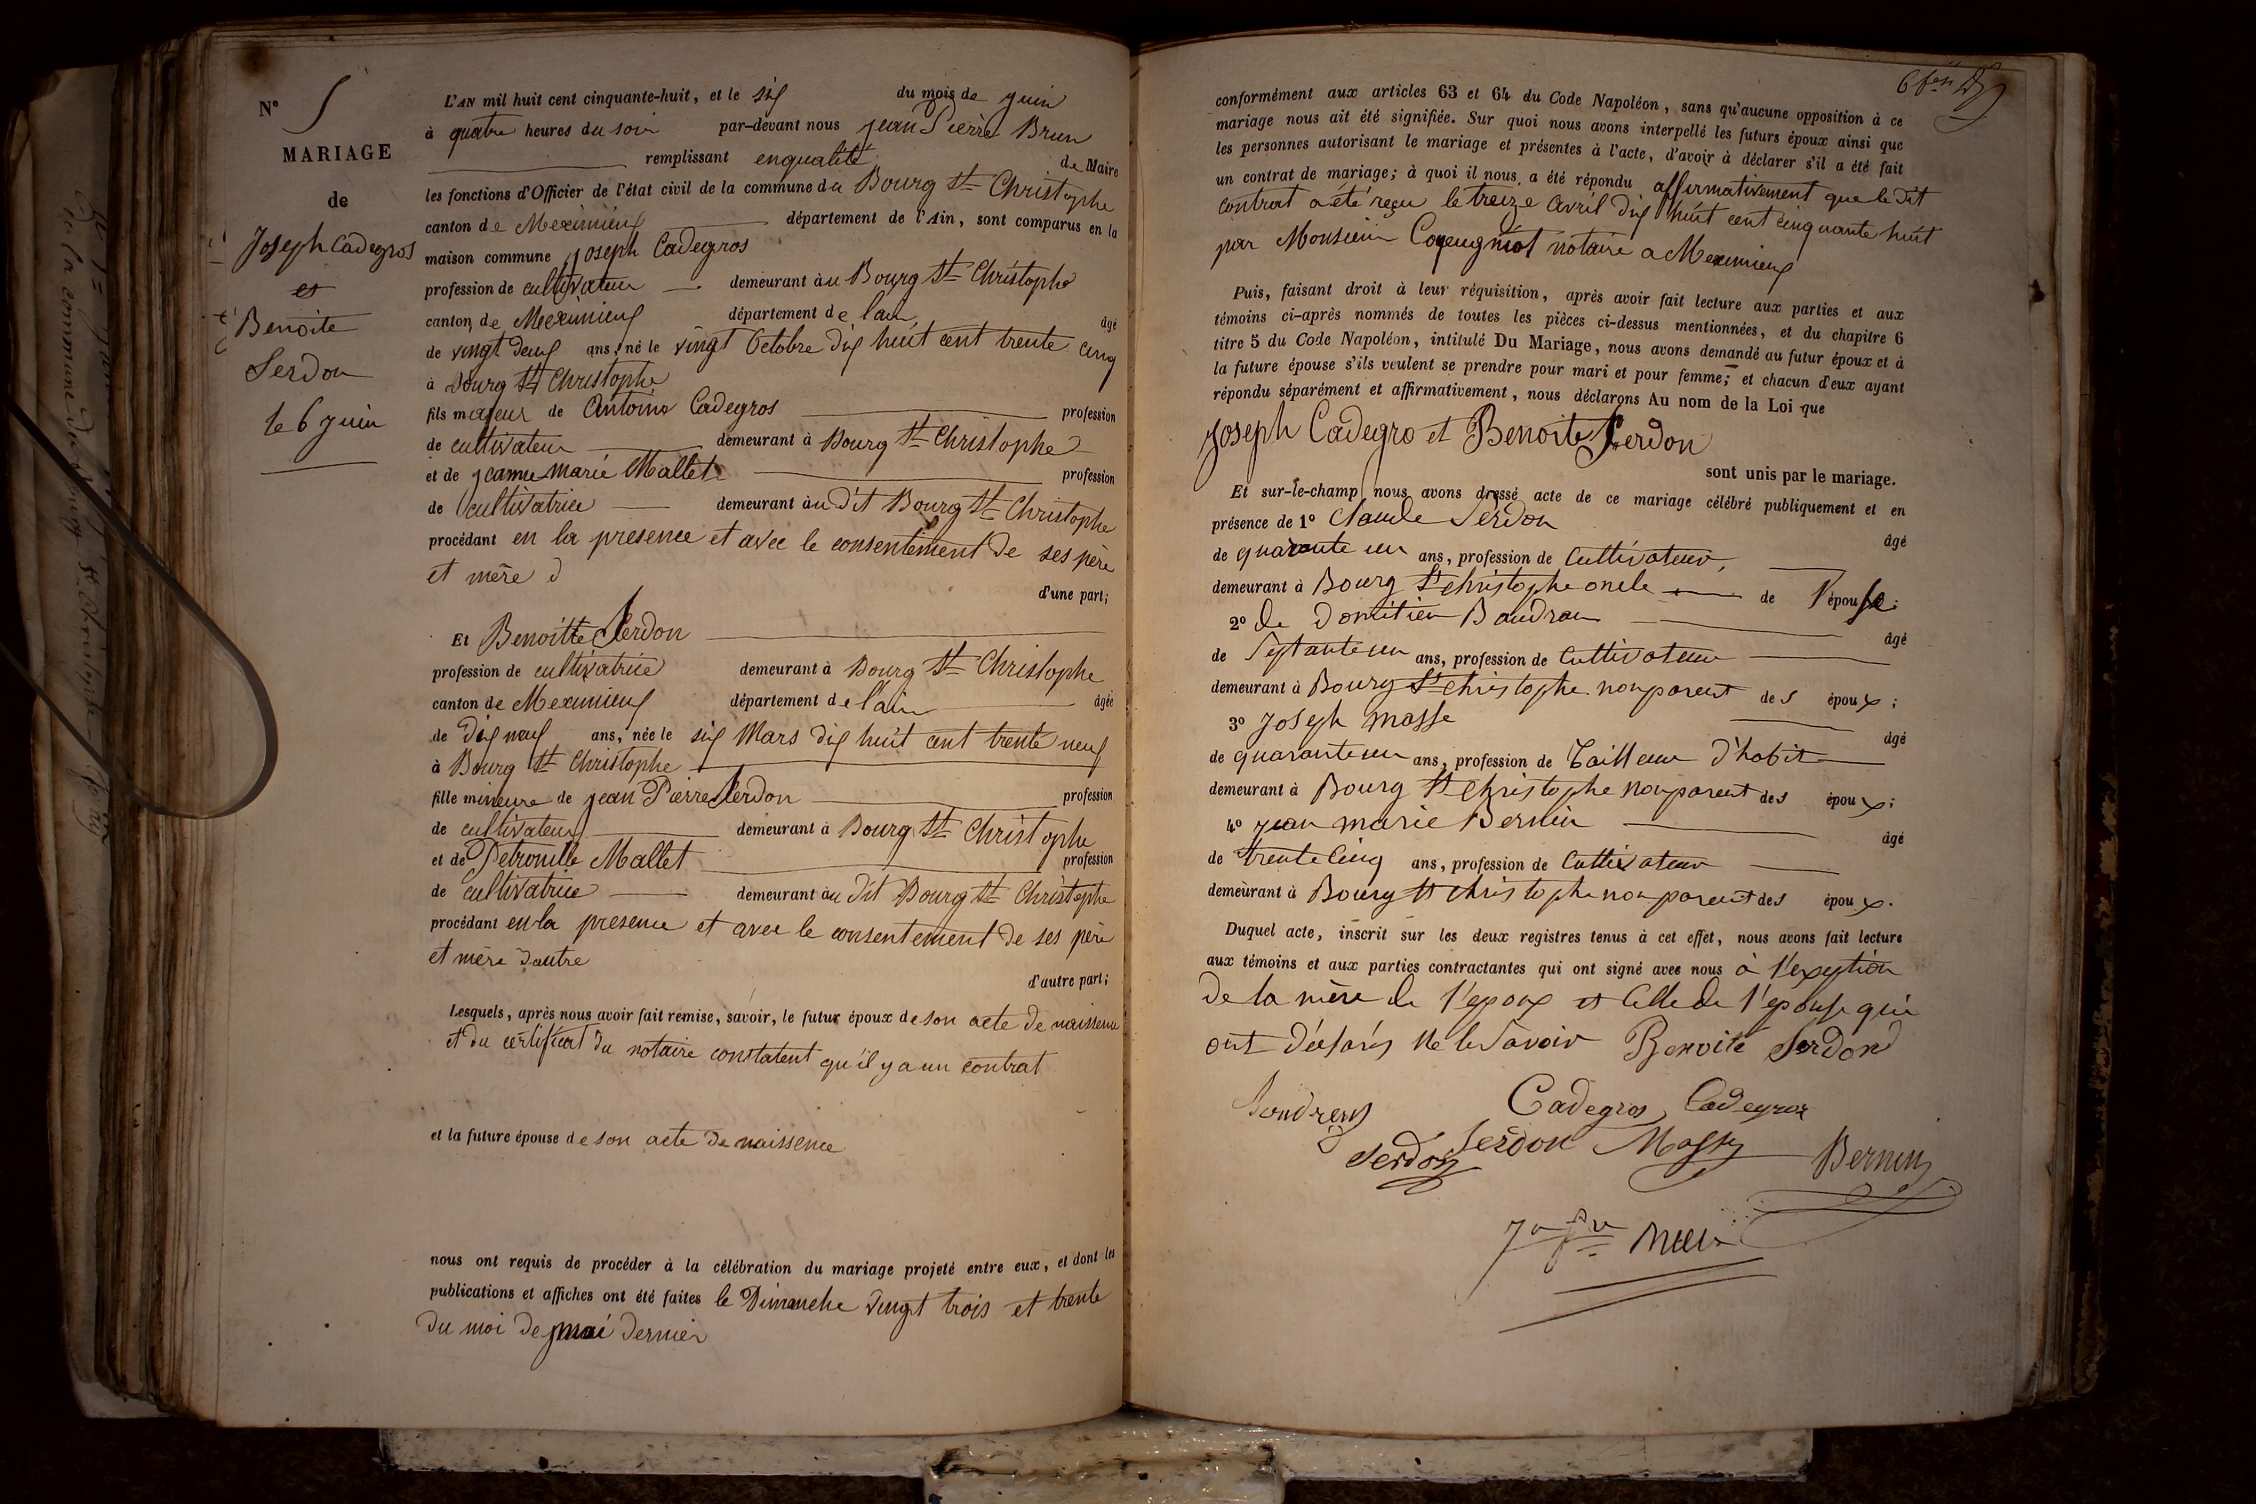 N° 5
MARIAGE
de
Joseph Cadegros
et
Benoite
Serdon
le 6 juin
L'AN mil huit cent cinquante-huit, et le six du mois de juin
à quatre heures du soir par-devant nous Jean Pierre Brun
remplissant enqualité de Maire
les fonctions d'Officier de l'état civil de la commune du Bourg St Christophe
canton de Meximieux département de l'Ain, sont comparus en la
maison commune Joseph Cadegros
profession de cultivateur demeurant au Bourg St Christophe
canton de Meximieux département de l'ain âgé
de vingt deux ans, né le vingt Octobre dix huit cent trente cinq
à Bourg St Christophe
fils majeur de Antoine Cadegros profession
de cultivateur demeurant à Bourg St Christophe
et de jeanne marie Mallet profession
de cultivatrice demeurant au dit Bourg St Christophe
procédant en la presence et avec le consentement de ses père
et mère d
d'une part;
Et Benoitte Serdon
profession de cultivatrice demeurant à Bourg St Christophe
canton de Meximieux département de l'ain âgée
de dix neuf ans, née le six Mars dix huit cent trente neuf
à Bourg St Christophe
fille mineure de jean Pierre Serdon profession
de cultivateur demeurant à Bourg St Christophe
et de Petronille Mallet profession
de cultivatrice demeurant au dit Bourg St Christophe
procédant en la presence et avec le consentement de ses père
et mère d'autre
d'autre part;
Lesquels, après nous avoir fait remise, savoir, le futur époux de son acte de naissence
et du certificat du notaire constatent qu'il y a un contrat
et la future épouse de son acte de naissence
nous ont requis de procéder à la célébration du mariage projeté entre eux, et dont les
publications et affiches ont été faites le Dimanche vingt trois et trente
du moi de mai dernier
conformément aux articles 63 et 64 du Code Napoléon, sans qu'aucune opposition à ce
mariage nous ait été signifiée. Sur quoi nous avons interpellé les futurs époux ainsi que
les personnes autorisant le mariage et présentes à l'acte, d'avoir à déclarer s'il a été fait
un contrat de mariage; à quoi il nous a été répondu affirmativement que le dit
contrat a été reçu le treize avril dix huit cent cinquante huit
par Monsieur notaire a Meximieux
Puis, faisant droit à leur réquisition, après avoir fait lecture aux parties et aux
témoins ci-après nommés de toutes les pièces ci-dessus mentionnées, et du chapitre 6
titre 5 du Code Napoléon, intitulé Du Mariage, nous avons demandé au futur époux et à
la future épouse s'ils veulent se prendre pour mari et pour femme; et chacun d'eux ayant
répondu séparément et affirmativement, nous déclarons Au nom de la Loi que
Joseph Cadegro et Benoite Serdon
sont unis par le mariage.
Et sur-le-champ nous avons dressé acte de ce mariage célébré publiquement et en
présence de 1° Claude Serdon
âgé
de quarante un ans, profession de Cultivateur,
demeurant à Bourg St Christophe oncle de l'épouse;
2° de Domitien Baudran
âgé
de Septante un ans, profession de Cultivateur
demeurant à Bourg St Christophe non parent des époux;
3° Joseph Masse
âgé
de quarante un ans, profession de Tailleur d'habit
demeurant à Bourg St Christophe non parent des époux;
4° jean marie Bernin
âgé
de trente Cinq ans, profession de Cultivateur
demeurant à Bourg St Christophe non parent des époux.
Duquel acte, inscrit sur les deux registres tenus à cet effet, nous avons fait lecture
aux témoins et aux parties contractantes qui ont signé avec nous à l'exeption
de la mère de l'epoux et Celle de l'epouse qui
ont déclarés ne le Savoir Benoite Serdon
Cadegros Cadegros
Serdon Serdon Masse Bernin